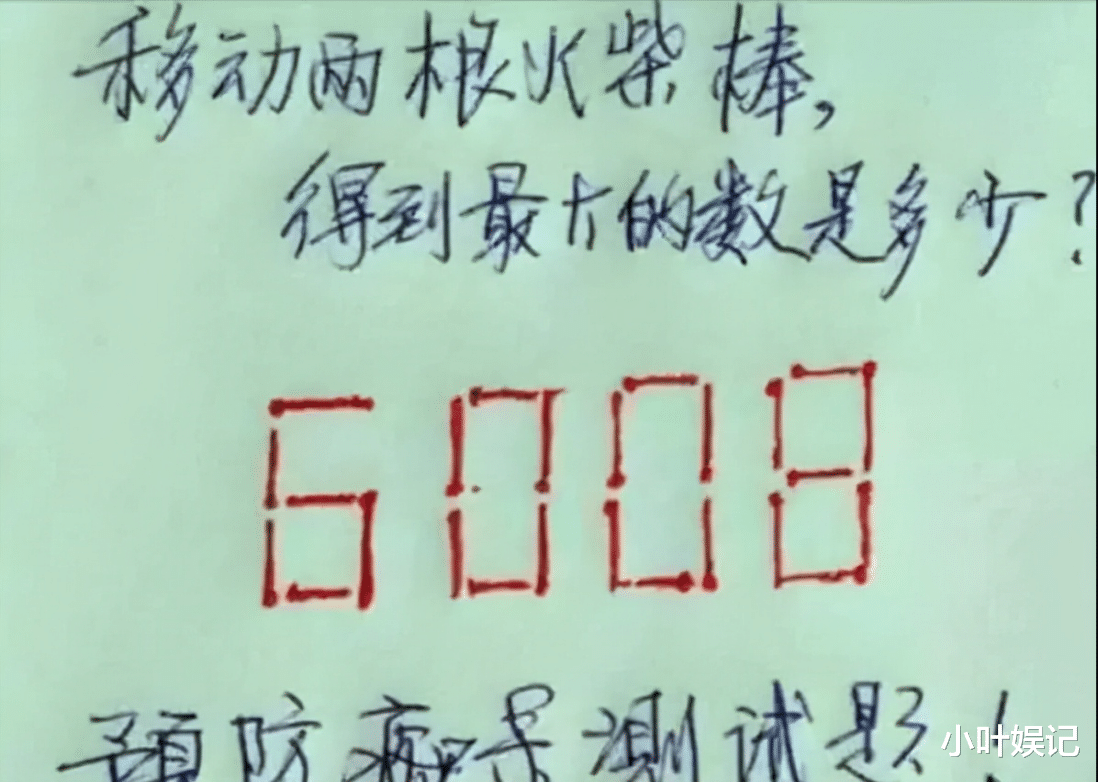 移动两根火柴棒,
得到最大的数是多少?
6008
预防痴呆测试题!
小叶娱记